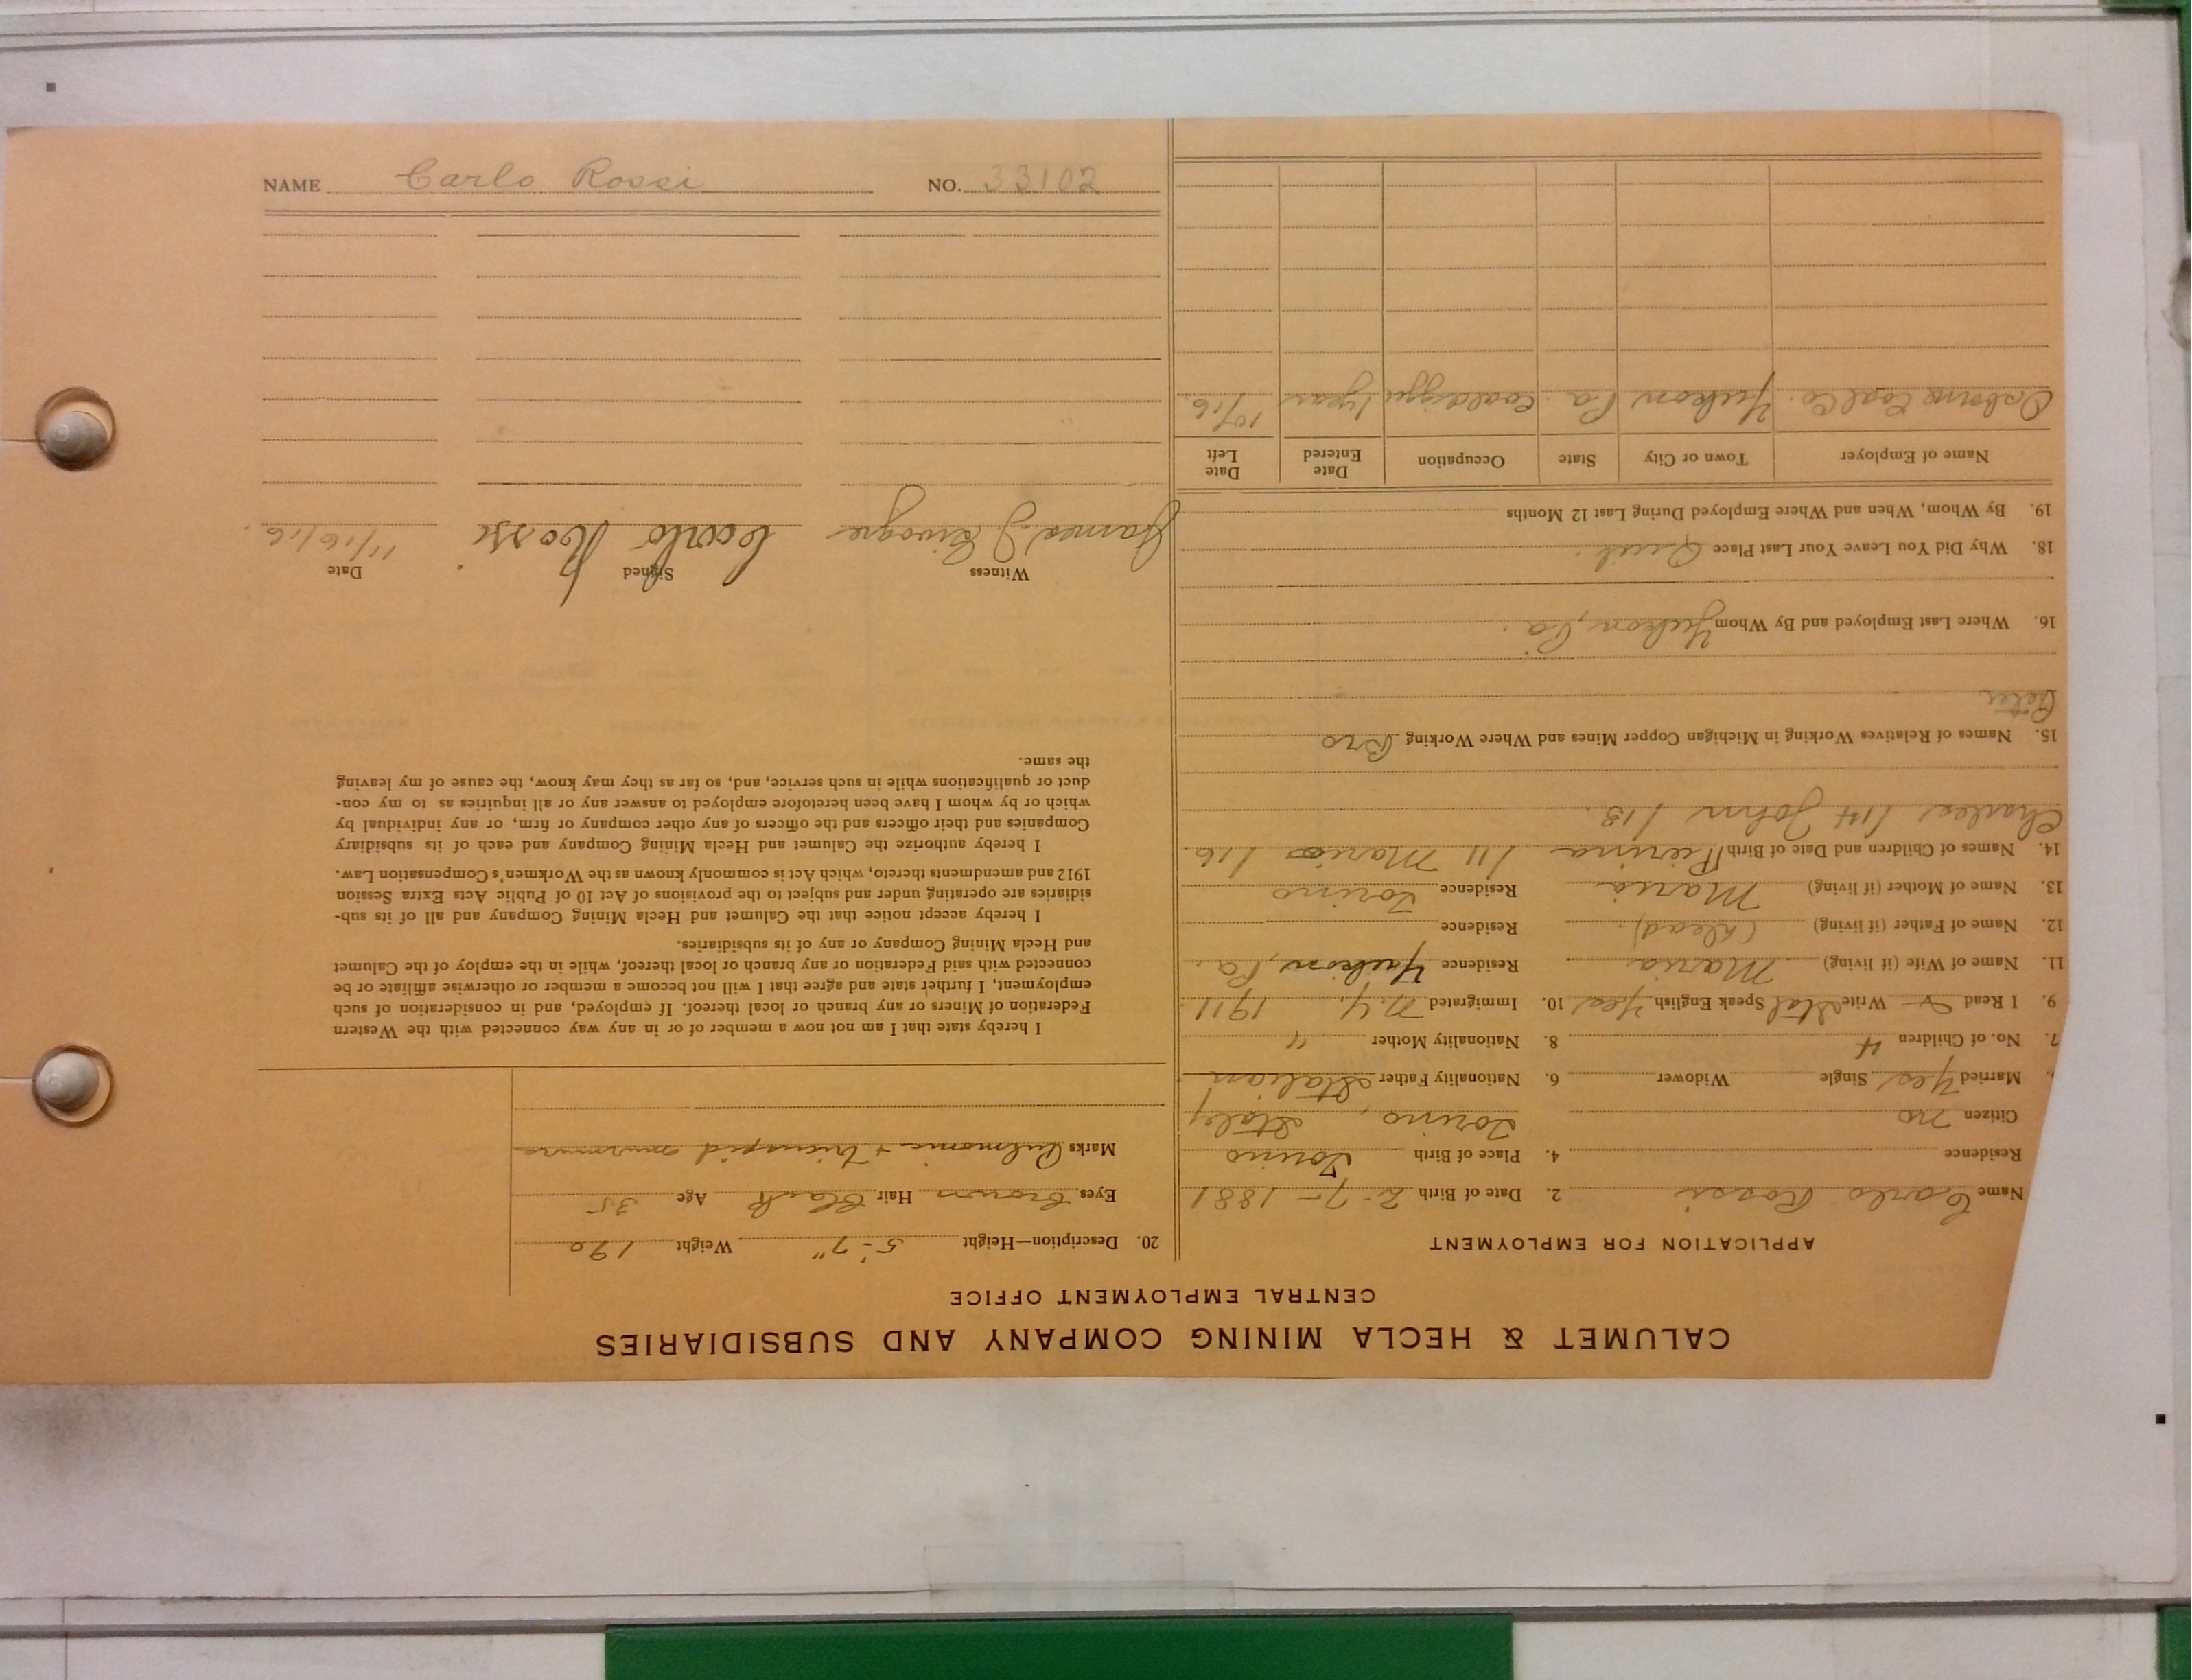 NAME Carlo Rossi NO. 33102
CALUMET & HECLA MINING COMPANY AND SUBSIDIARIES
CENTRAL EMPLOYMENT OFFICE
APPLICATION FOR EMPLOYMENT
Name Carlo Rossi 2. Date of Birth 2-7-1881
Residence 4. Place of Birth Torino
Citizen no Torino, Italy
Married Yes Single Widower 6. Nationality Father Italian
7. No. of Children 4 8. Nationality Mother "
9. I Read & Write Ital Speak English Yes 10. Immigrated N.Y. 1911
11. Name of Wife (if living) Maria Residence Yukon, Pa.
12. Name of Father (if living) (dead) Residence
13. Name of Mother (if living) Maria Residence Torino
14. Names of Children and Date of Birth Pierina /11 Maria /16
Charles /14 John /13.
15. Names of Relatives Working in Michigan Copper Mines and Where Working Bro
Peter
16. Where Last Employed and By Whom Yukon, Pa.
18. Why Did You Leave Your Last Place Quit.
19. By Whom, When and Where Employed During Last 12 Months
Name of Employer Town or City State Occupation Date Entered Date Left
Osborne Coal Co. Yukon Pa. Coal digger 1 year 10/16
20. Description—Height 5'-7" Weight 190
Eyes Brown Hair Black Age 35
Marks Pulmonic + tricuspid murmurs
I hereby state that I am not now a member of or in any way connected with the Western
Federation of Miners or any branch or local thereof. If employed, and in consideration of such
employment, I further state and agree that I will not become a member or otherwise affiliate or be
connected with said Federation or any branch or local thereof, while in the employ of the Calumet
and Hecla Mining Company or any of its subsidiaries.
I hereby accept notice that the Calumet and Hecla Mining Company and all of its sub-
sidiaries are operating under and subject to the provisions of Act 10 of Public Acts Extra Session
1912 and amendments thereto, which Act is commonly known as the Workmen's Compensation Law.
I hereby authorize the Calumet and Hecla Mining Company and each of its subsidiary
Companies and their officers and the officers of any other company or firm, or any individual by
which or by whom I have been heretofore employed to answer any or all inquiries as to my con-
duct or qualifications while in such service, and, so far as they may know, the cause of my leaving
the same.
Witness Signed Date
James J. Carlo Rossi 11/16/16.